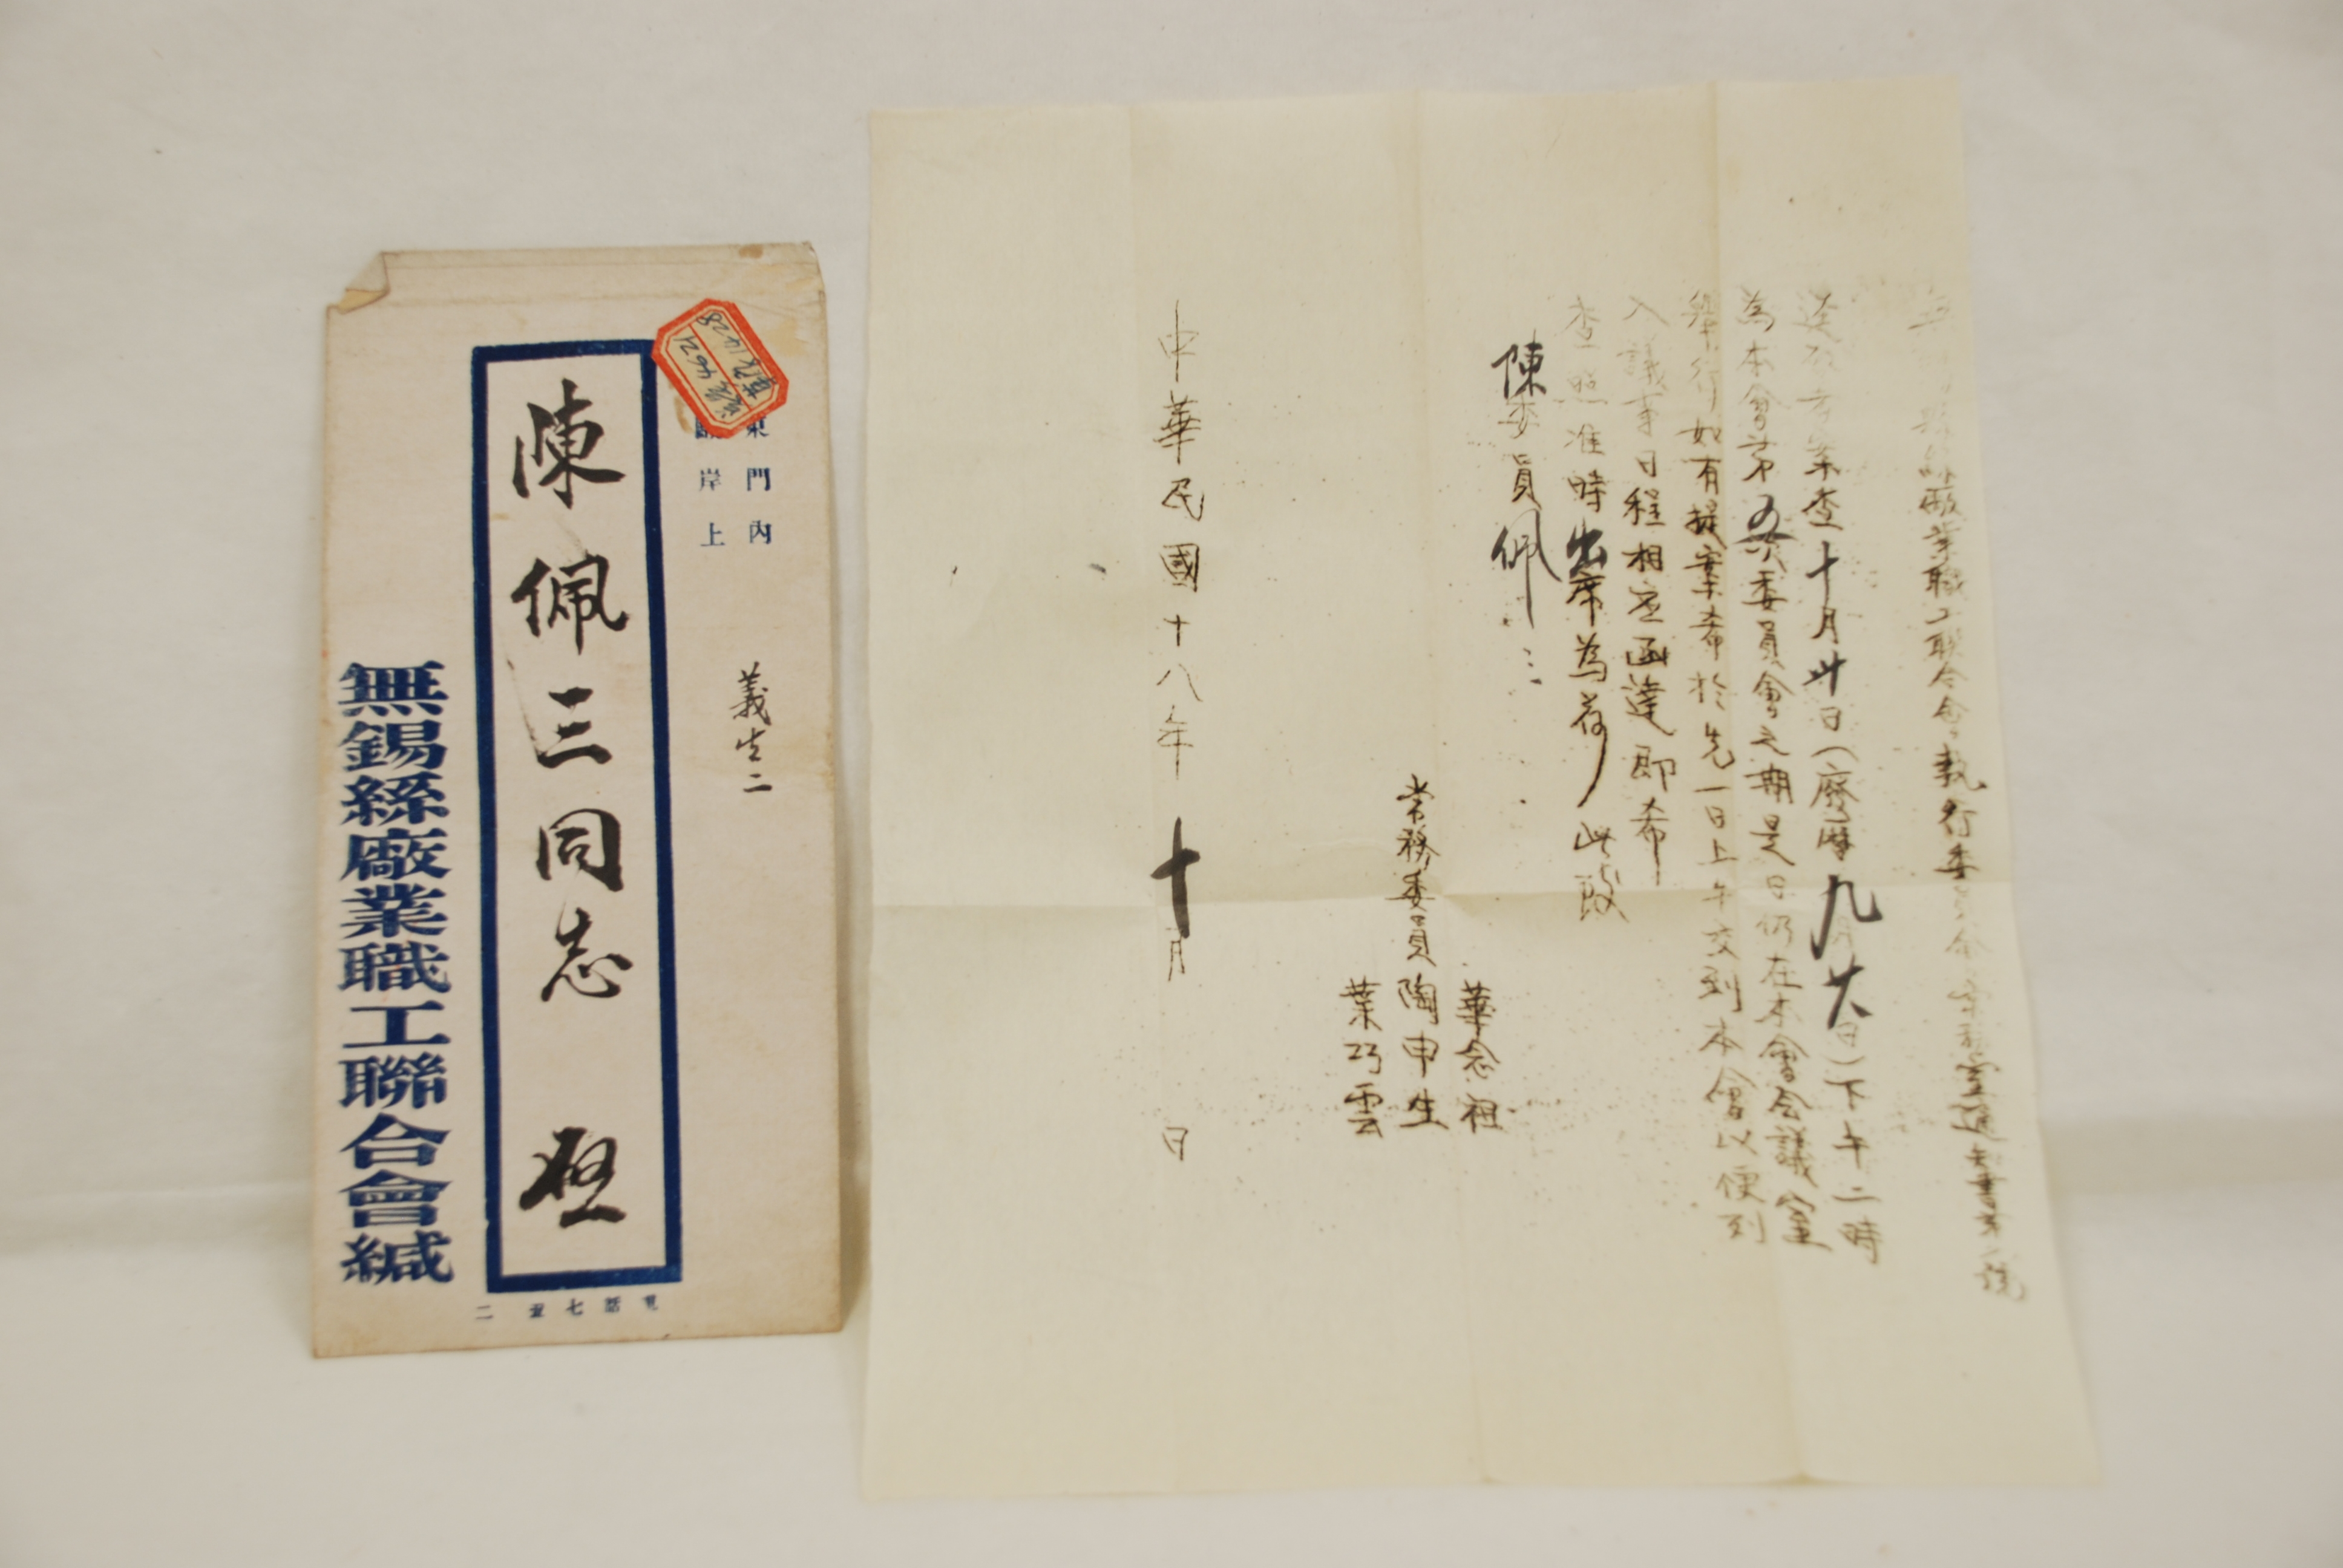 東門內
岸上
義生二
陳佩三同志 啟
無錫絲廠業職工聯合會緘
電話七五二
絲廠業職工聯合會執行委員會 通知書第 號
逕啟者案查十月卅日（廢曆九月廿八日）下午二時
為本會第五次委員會之期是日仍在本會會議室
舉行如有提案希於先一日上午交到本會以便列
入議事日程相應函達即希
查照准時出席為荷此致
陳委員佩三
華念祖
常務委員陶申生
葉巧雲
中華民國十八年十月 日